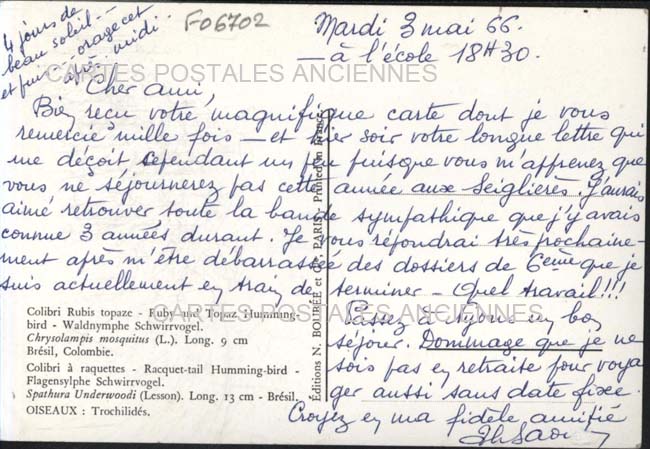 4 jours de
beau soleil –
et puis.. orage cet
après-midi.
F06702
Mardi 3 mai 66.
– à l'école 18H30.
CARTES POSTALES ANCIENNES
Cher ami,
Bien reçu votre magnifique carte dont je vous
remercie mille fois – et hier soir votre longue lettre qui
me déçoit cependant un peu puisque vous m'apprenez que
vous ne séjournerez pas cette année aux Seiglières. J'aurais
aimé retrouver toute la bande sympathique que j'y avais
connue 3 années durant. Je vous répondrai très prochaine-
ment après m'être débarrassée des dossiers de 6ème que je
suis actuellement en train de terminer – Quel travail!!!
CARTES POSTALES ANCIENNES
Passez à Nyons un bon
séjour. Dommage que je ne
sois pas en retraite pour voya
ger aussi sans date fixe.
Croyez en ma fidèle amitié
Colibri Rubis topaze - Ruby and Topaz Humming-
bird - Waldnymphe Schwirrvogel.
Chrysolampis mosquitus (L.). Long. 9 cm
Brésil, Colombie.
Colibri à raquettes - Racquet-tail Humming-bird -
Flagensylphe Schwirrvogel.
Spathura Underwoodi (Lesson). Long. 13 cm - Brésil.
OISEAUX : Trochilidés.
Éditions N. BOUBÉE et Cie, PARIS, Printed in France